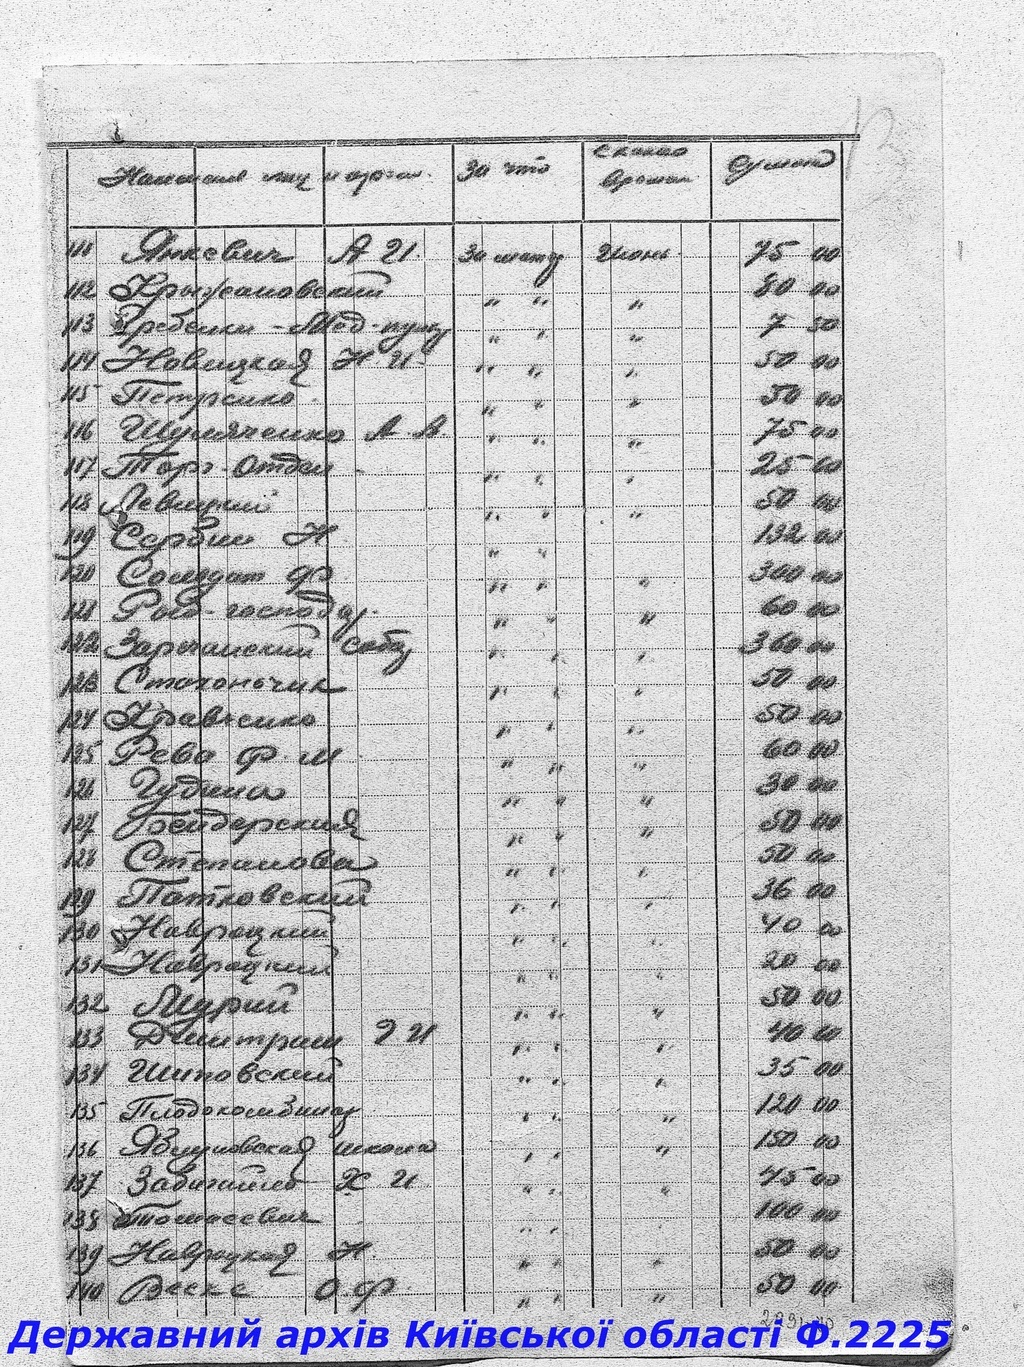 13
За что С какого времени Сумма
111 Янкевич А И. За хату Июнь 75 00
112 Крыжановский " " " 80 00
113 Гребенки - Мед-пункт " " " 7 50
114 Новицкая Н И. " " " 50 00
115 Петренко " " " 50 00
116 А В. " " " 75 00
117 Торг-Отдел " " " 25 00
118 Левицкий " " " 50 00
119 Сербин Н. " " 132 00
120 Солидат Ф " " " 300 00
121 господар. " " " 60 00
122 " " " 360 00
123 Стохоньчик " " " 50 00
124 Кравченко " " " 50 00
125 Рева Ф. М " " " 60 00
126 Гудина " " " 30 00
127 " " " 50 00
128 Степанова " " " 50 00
129 Патковский " " " 36 00
130 Навроцкий " " " 40 00
131 Навроцкий " " " 20 00
132 Мудрий " " " 50 00
133 И " " " 40 00
134 Шиповский " " " 35 00
135 Плодокомбинат " " " 120 00
136 школа " " " 150 00
137 Х И " " " 45 00
138 Томасевич " " " 100 00
139 Навроцкая Н " " " 50 00
140 О. Ф. " " " 50 00
Державний архів Київської області Ф.2225